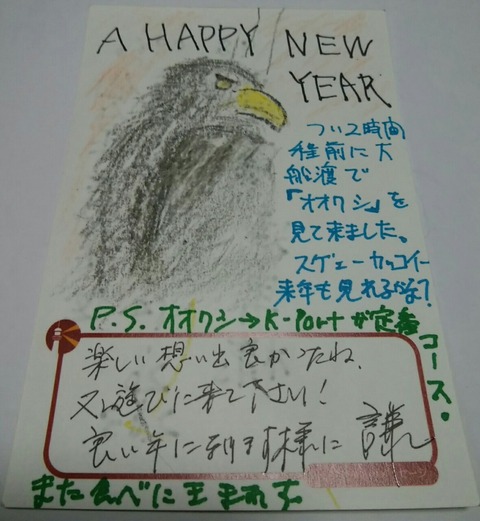 A HAPPY NEW
YEAR
つい2時間
程前に大
船渡で
「オオワシ」を
見て来ました。
スゲェーカッコイー
来年も見れるかな?
P.S. オオワシ→K-Portが定番
コース。
楽しい想い出良かったね、
又遊びに来て下さい!
良い年になります様に 謙
また食べに